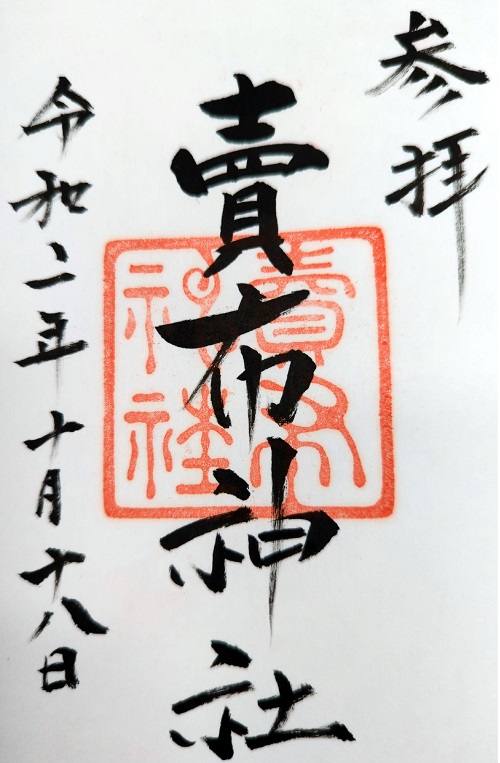 参拝
賣布神社
賣布神社
令和二年十月十八日